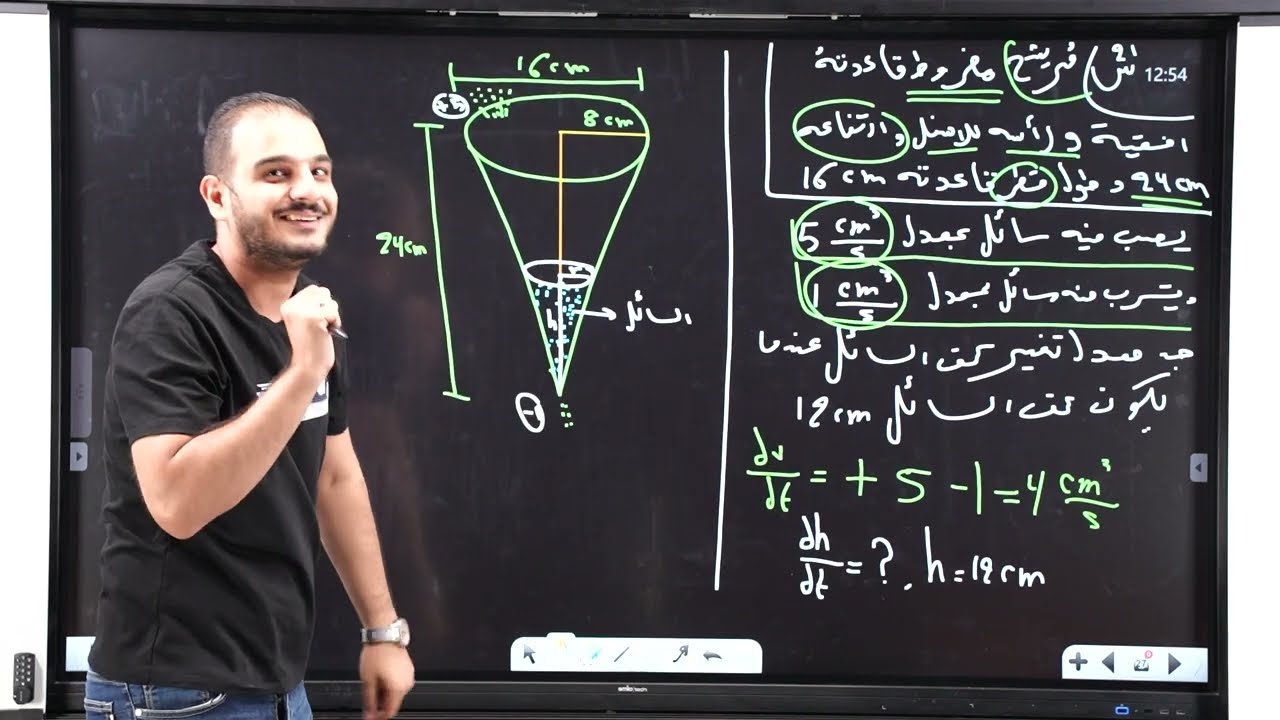 16cm
8cm
24cm
h
السائل
س/ مرشح مخروط قاعدته
12:54
افقية و رأسه للاسفل و ارتفاعه
24cm و طول قطر قاعدته 16cm
يصب فيه سائل بمعدل 5 cm³/s
و يتسرب منه سائل بمعدل 1 cm³/s
جد معدل تغير عمق السائل عندما
يكون عمق السائل 12cm
dv/dt = + 5 - 1 = 4 cm³/s
dh/dt = ? , h = 12cm
27